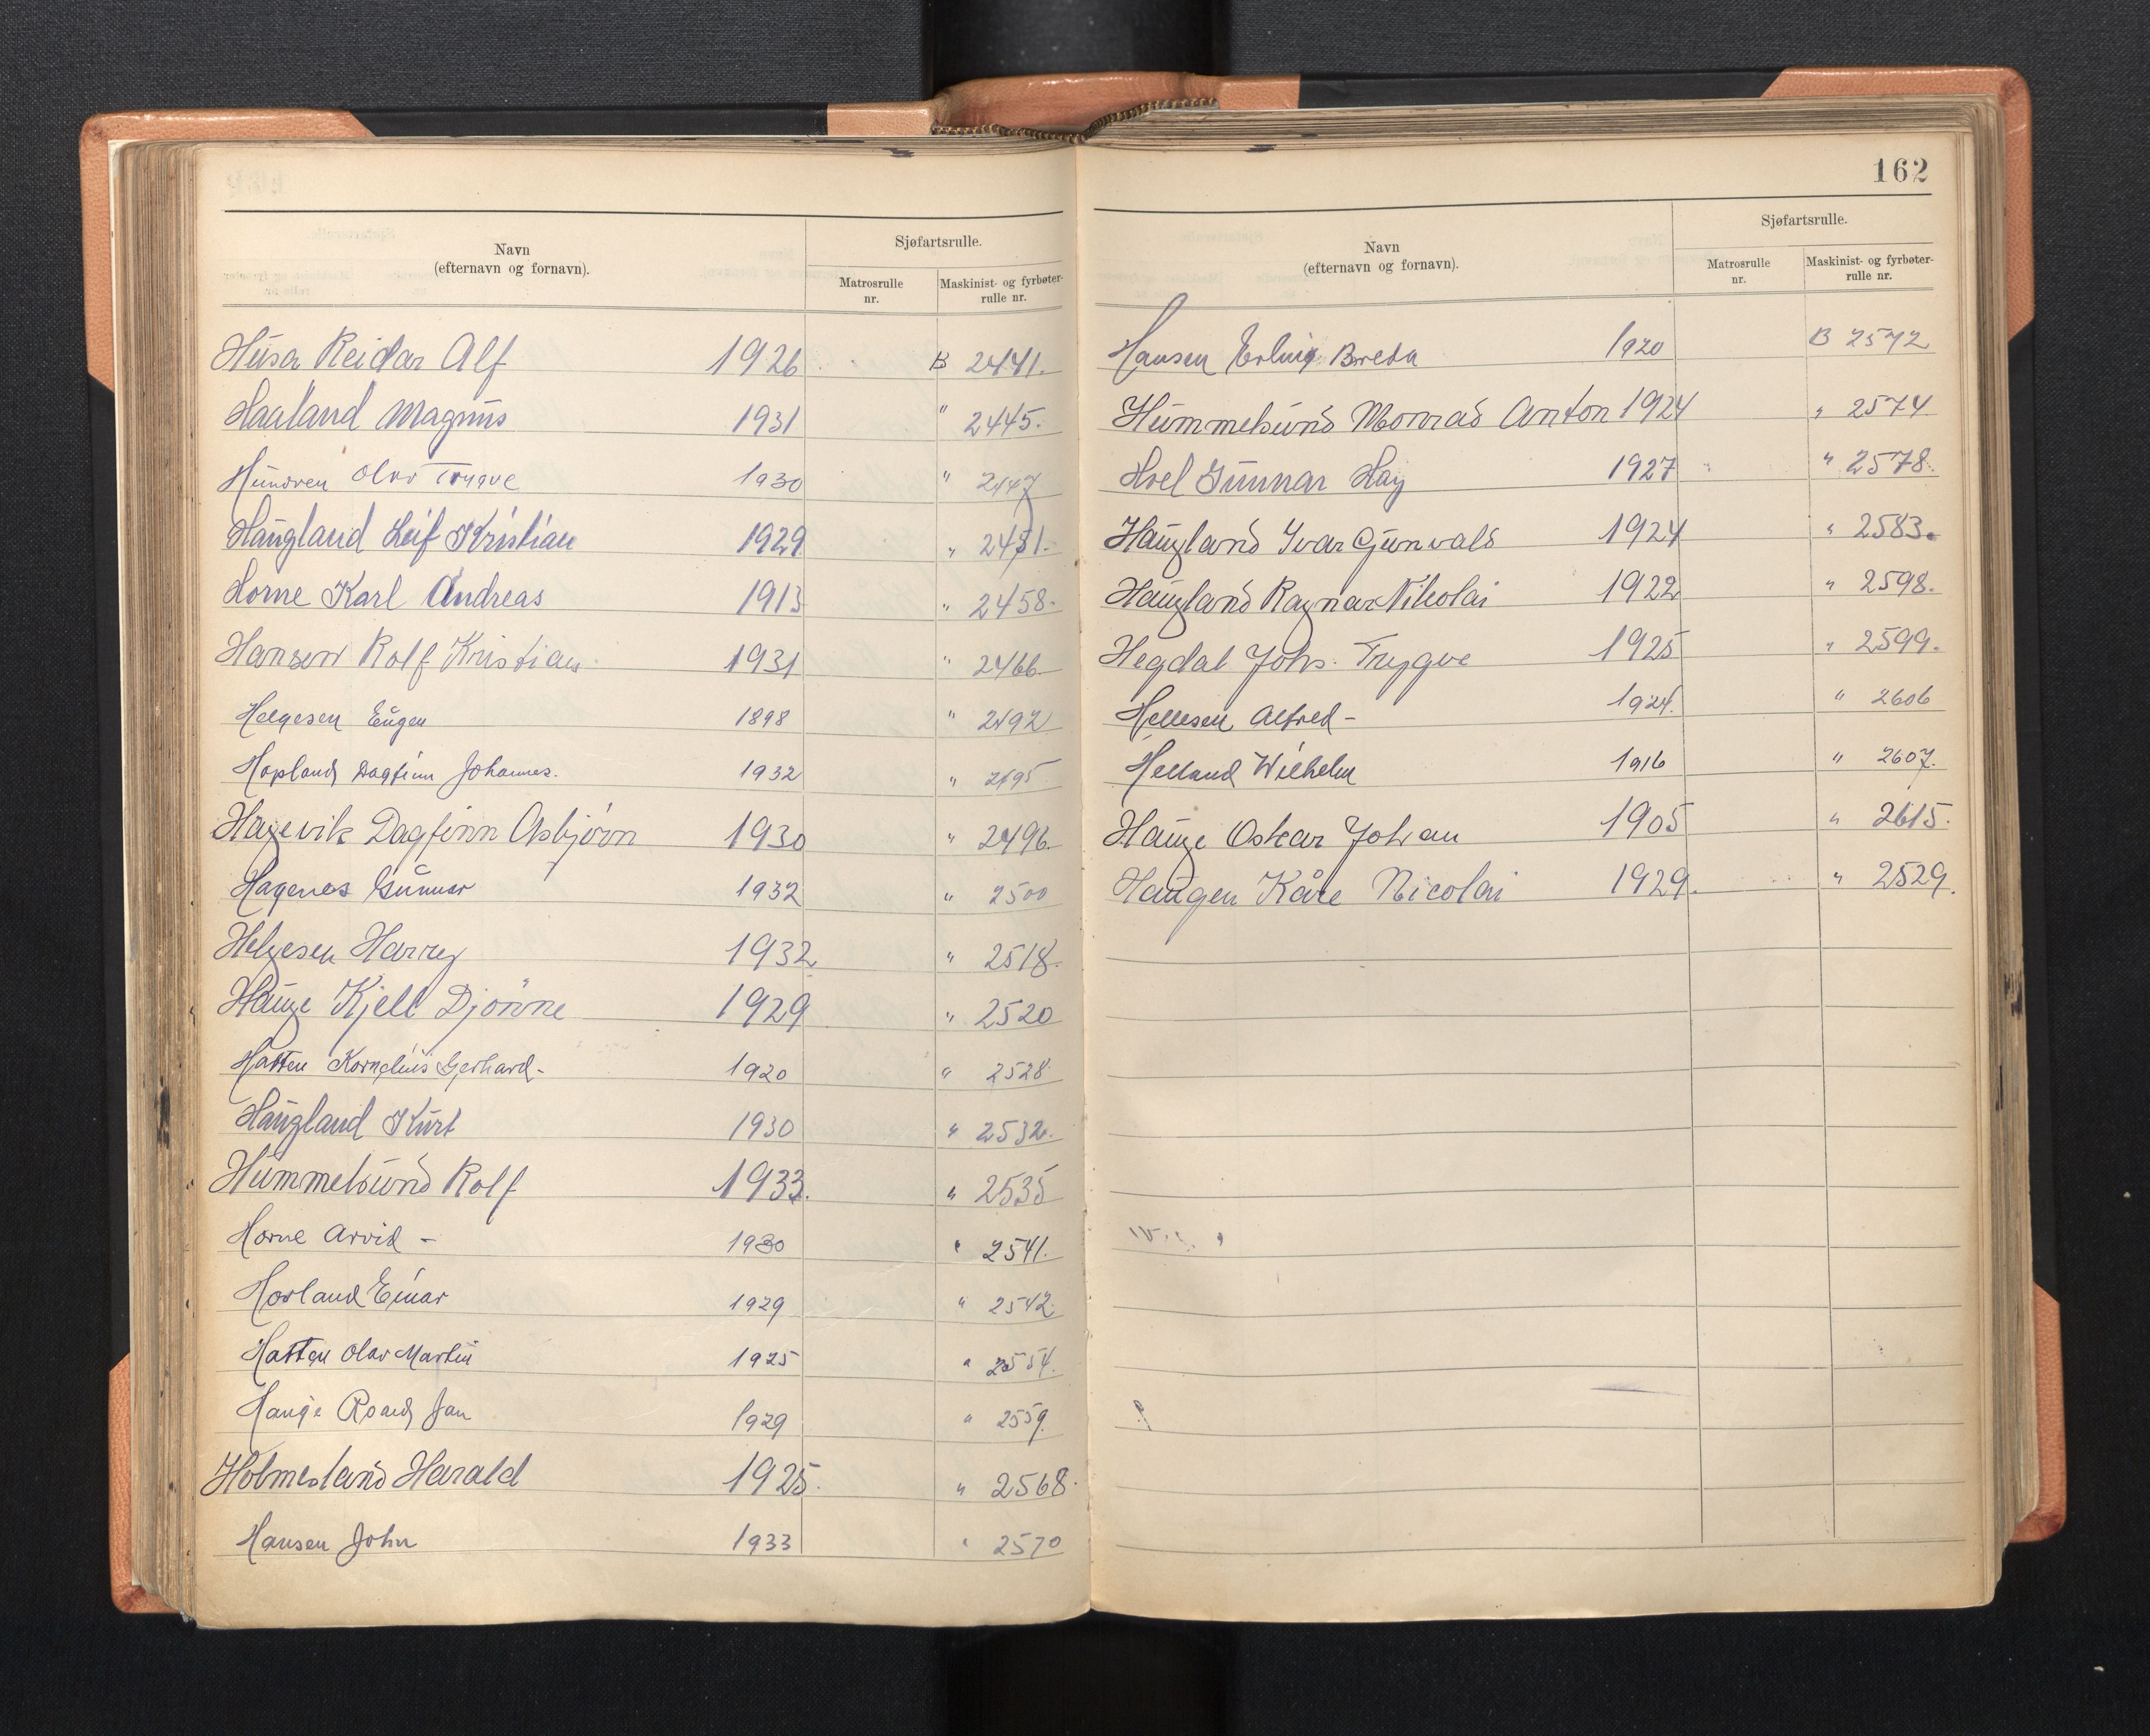 162
Navn
(efternavn og fornavn).
Sjøfartsrulle.
Matrosrulle
nr.
Maskinist- og fyrbøter-
rulle nr.
Husa Reidar Alf 1926 B 2441.
Haaland Magnus 1931 " 2445.
Hundven Olav Trygve 1930 " 2447
Haugland Leif Kristian 1929 " 2451.
Horne Karl Andreas 1913 " 2458.
Hansen Rolf Kristian 1931 " 2466.
Helgesen Eugen 1898 " 2492
Hopland Dagfinn Johannes. 1932 " 2495
Hagevik Dagfinn Asbjørn 1930 " 2496.
Hagenes Gunnar 1932 " 2500
Helgesen Harry 1932 " 2518.
Hauge Kjell Djønne 1929 " 2520
Hatten Kornelius Gerhard- 1920 " 2528
Haugland Kurt 1930 " 2532.
Hummelsund Rolf 1933. " 2535
Horne Arvid - 1930 " 2541.
Hovland Einar 1929 " 2542.
Hatten Olav Martin 1925 " 2554.
Hauge Roald Jan 1929 " 2559.
Holmesland Harald 1925. " 2568.
Hansen John 1933 " 2570
Navn
(efternavn og fornavn).
Sjøfartsrulle.
Matrosrulle
nr.
Maskinist- og fyrbøter-
rulle nr.
Hansen Erling Breda 1920 B 2572
Hummelsund Monrad Anton 1924 " 2574
Hoel Gunnar Hay 1927 " 2578.
Haugland Ivar Gunvald 1924 " 2583.
Haugland Ragnar Nikolai 1922 " 2598.
Hegdal Johs. Trygve 1925 " 2599.
Hellesen Alfred - 1924. " 2606
Helland Wilhelm 1916 " 2607.
Hauge Oskar Johan 1905 " 2615.
Haugen Kåre Nicolai 1929. " 2529.